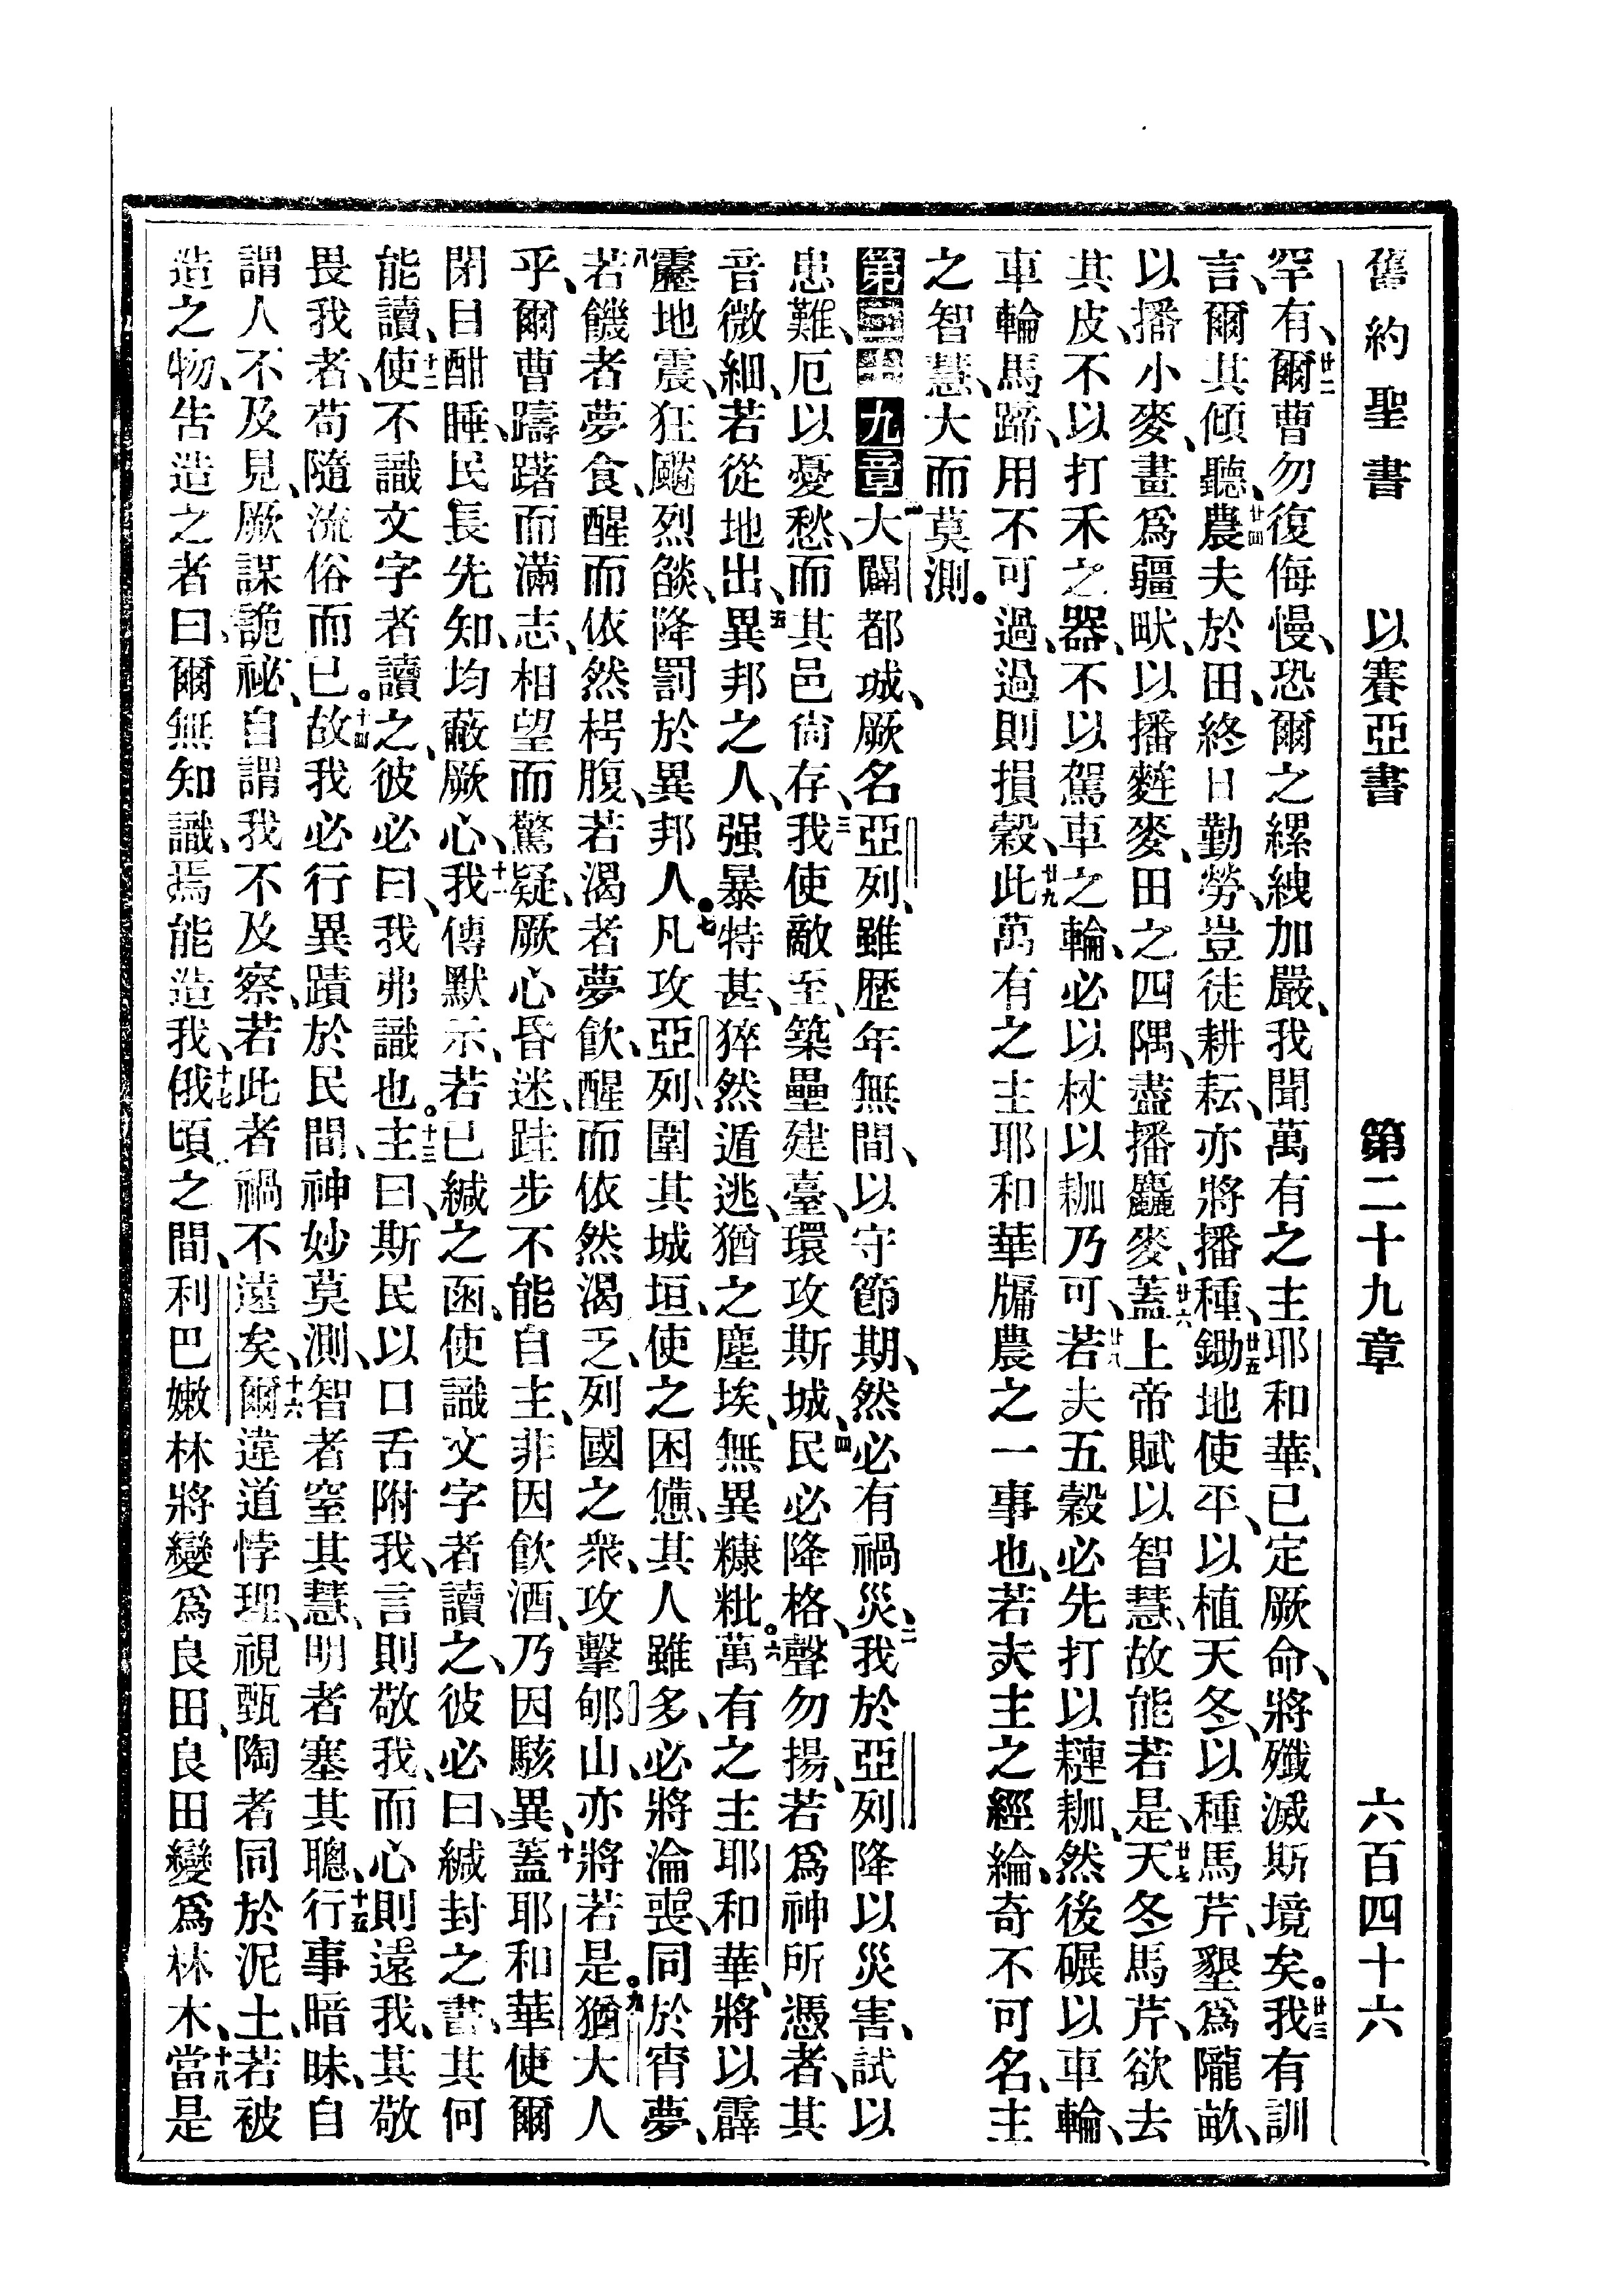 舊約聖書 以賽亞書 第二十九章 六百四十六
罕有、廿二爾曹勿復侮慢、恐爾之縲絏加嚴、我聞萬有之主耶和華、已定厥命、將殲滅斯境矣。廿三我有訓
言、爾其傾聽、廿四農夫於田、終日勤勞、豈徒耕耘、亦將播種、廿五鋤地使平、以植天冬、以種馬芹、墾爲隴畝、
以播小麥、畫爲疆畎、以播麰麥、田之四隅、盡播麤麥、廿六蓋上帝賦以智慧、故能若是、廿七天冬馬芹、欲去
其皮、不以打禾之器、不以駕車之輪、必以杖以耞乃可、廿八若夫五穀必先打以耞、然後碾以車輪、
車輪馬蹄、用不可過、過則損穀、廿九此萬有之主耶和華牖農之一事也、若夫主之經綸、奇不可名、主
之智慧、大而莫測。
第二十九章 一大闢都城、厥名亞列、雖歷年無間、以守節期、然必有禍災、二我於亞列降以災害、試以
患難、厄以憂愁、而其邑尙存、三我使敵至、築壘建臺、環攻斯城、四民必降格、聲勿揚、若爲神所憑者、其
音微細、若從地出、五異邦之人、强暴特甚、猝然遁逃、猶之塵埃、無異糠粃。六萬有之主耶和華、將以霹
靂地震、狂飈烈燄、降罰於異邦人。七凡攻亞列、圍其城垣、使之困憊、其人雖多、必將淪喪、同於宵夢、
八若饑者夢食、醒而依然枵腹、若渴者夢飲、醒而依然渴乏、列國之衆、攻擊郇山、亦將若是。九猶大人
乎、爾曹躊躇而滿志、相望而驚疑、厥心昏迷、跬步不能自主、非因飲酒、乃因駭異、十蓋耶和華使爾
閉目酣睡、民長先知、均蔽厥心、十一我傳默示、若已緘之函、使識文字者讀之、彼必曰、緘封之書、其何
能讀、十二使不識文字者讀之、彼必曰、我弗識也。十三主曰、斯民以口舌附我、言則敬我、而心則遠我、其敬
畏我者、苟隨流俗而已。十四故我必行異蹟於民間、神妙莫測、智者窒其慧、明者塞其聰、十五行事暗昧、自
謂人不及見、厥謀詭祕、自謂我不及察、若此者禍不遠矣、十六爾違道悖理、視甄陶者同於泥土、若被
造之物、告造之者曰、爾無知識、焉能造我、十七俄頃之間、利巴嫩林將變爲良田、良田變爲林木、十八當是